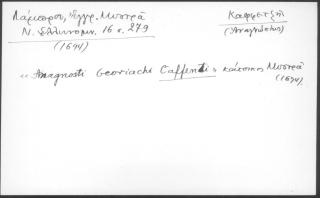 Λάμπρου, Έγγρ. Μυστρά
Ν. Ἑλληνομν. 16 σ. 279
(1694)
Καφφετζῆ
(Ἀναγνώστης)
" Anagnosti Georiachi Caffenti, κάτοικος Μυστρᾶ
(1694)